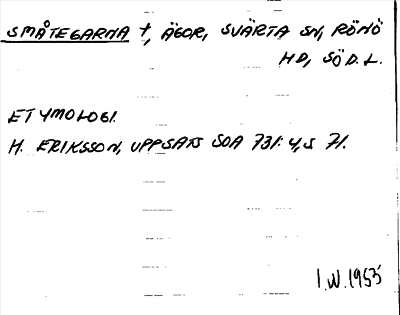 SMÅTEGARNA †, ÄGOR, SVÄRTA SN, RÖNÖ
HD, SÖD.L.
ETYMOLOGI.
H. ERIKSSON, UPPSATS SOA 731:4, S 71.
I.W. 1953